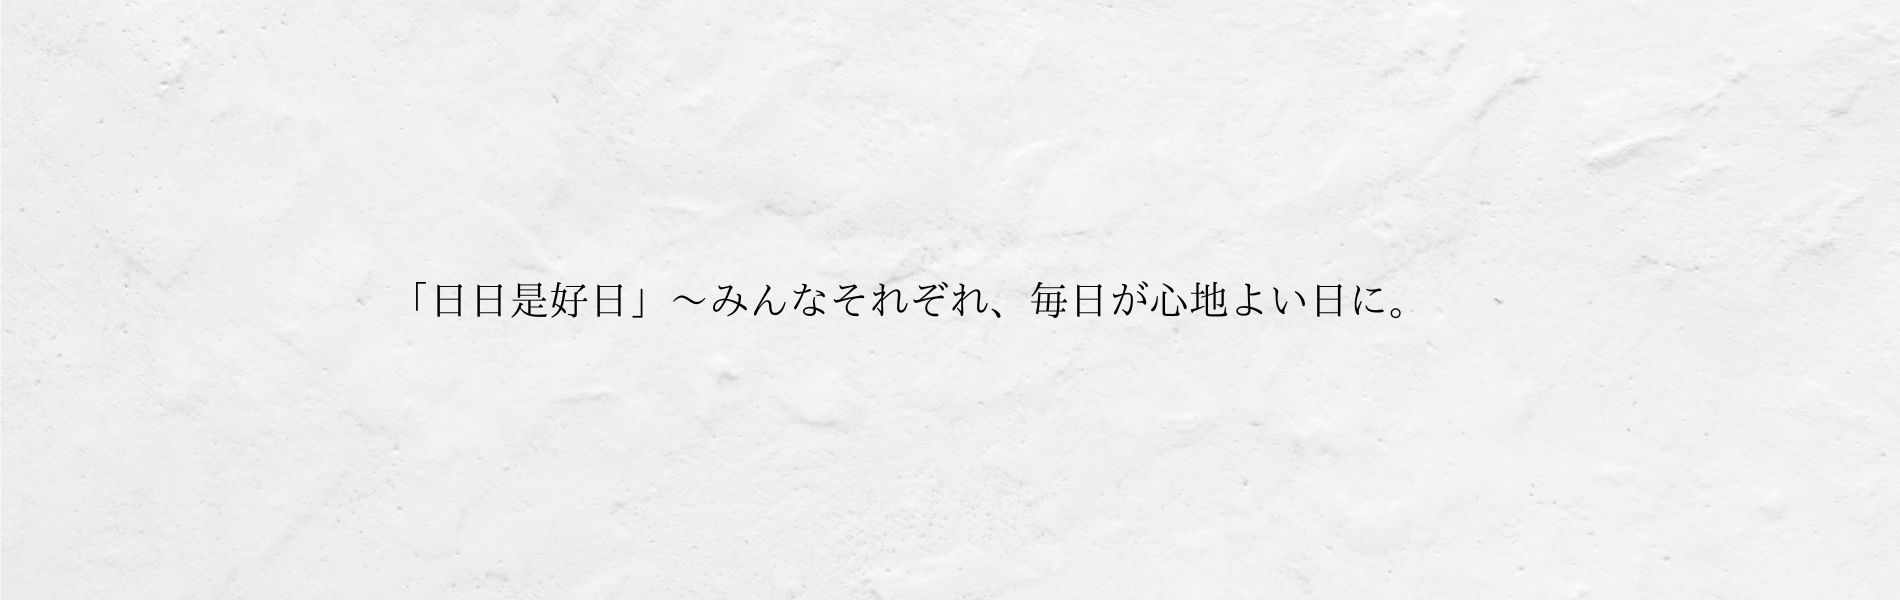 「日日是好日」～みんなそれぞれ、毎日が心地よい日に。